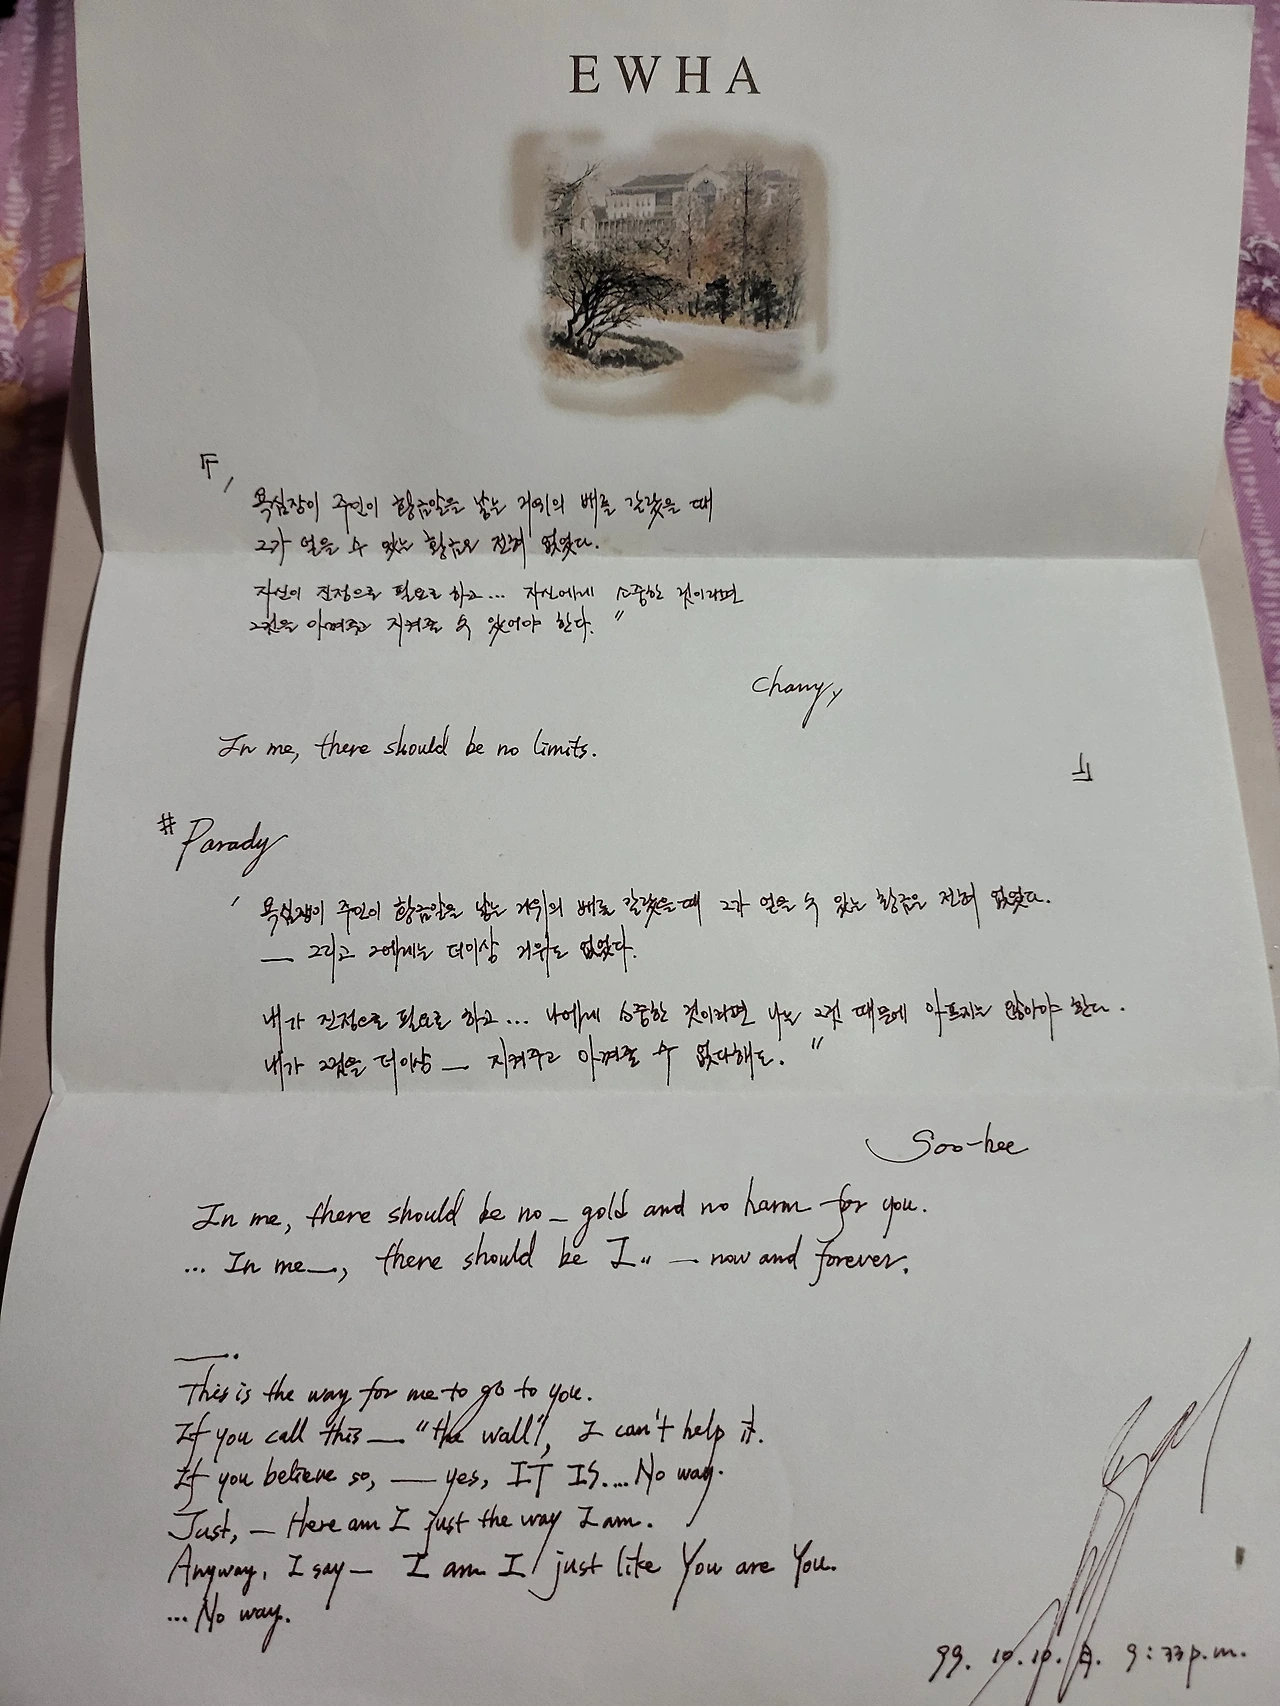 EWHA
『
" 욕심장이 주인이 황금알을 낳는 거위의 배를 갈랐을 때
그가 얻을 수 있는 황금은 전혀 없었다.
자신이 진정으로 필요로 하고... 자신에게 소중한 것이라면
그것을 아껴주고 지켜줄 수 있어야 한다. "
In me, there should be no limits.
』
# Parady
' 욕심쟁이 주인이 황금알을 낳는 거위의 배를 갈랐을 때 그가 얻을 수 있는 황금은 전혀 없었다.
— 그리고 그에게는 더이상 거위도 없었다.
내가 진정으로 필요로 하고... 나에게 소중한 것이라면 나는 그것 때문에 아프지는 않아야 한다.
내가 그것을 더이상 — 지켜주고 아껴줄 수 없다해도. "
Soo-hee
In me, there should be no — gold and no harm for you.
... In me —, there should be I .. — now and forever.
—.
This is the way for me to go to you.
If you call this — "the wall", I can't help it.
If you believe so, — yes, IT IS.... No way.
Just, — Here am I just the way I am.
Anyway, I say — I am I just like You are You.
... No way.
99. 10. 10. 月. 9:33 p.m.